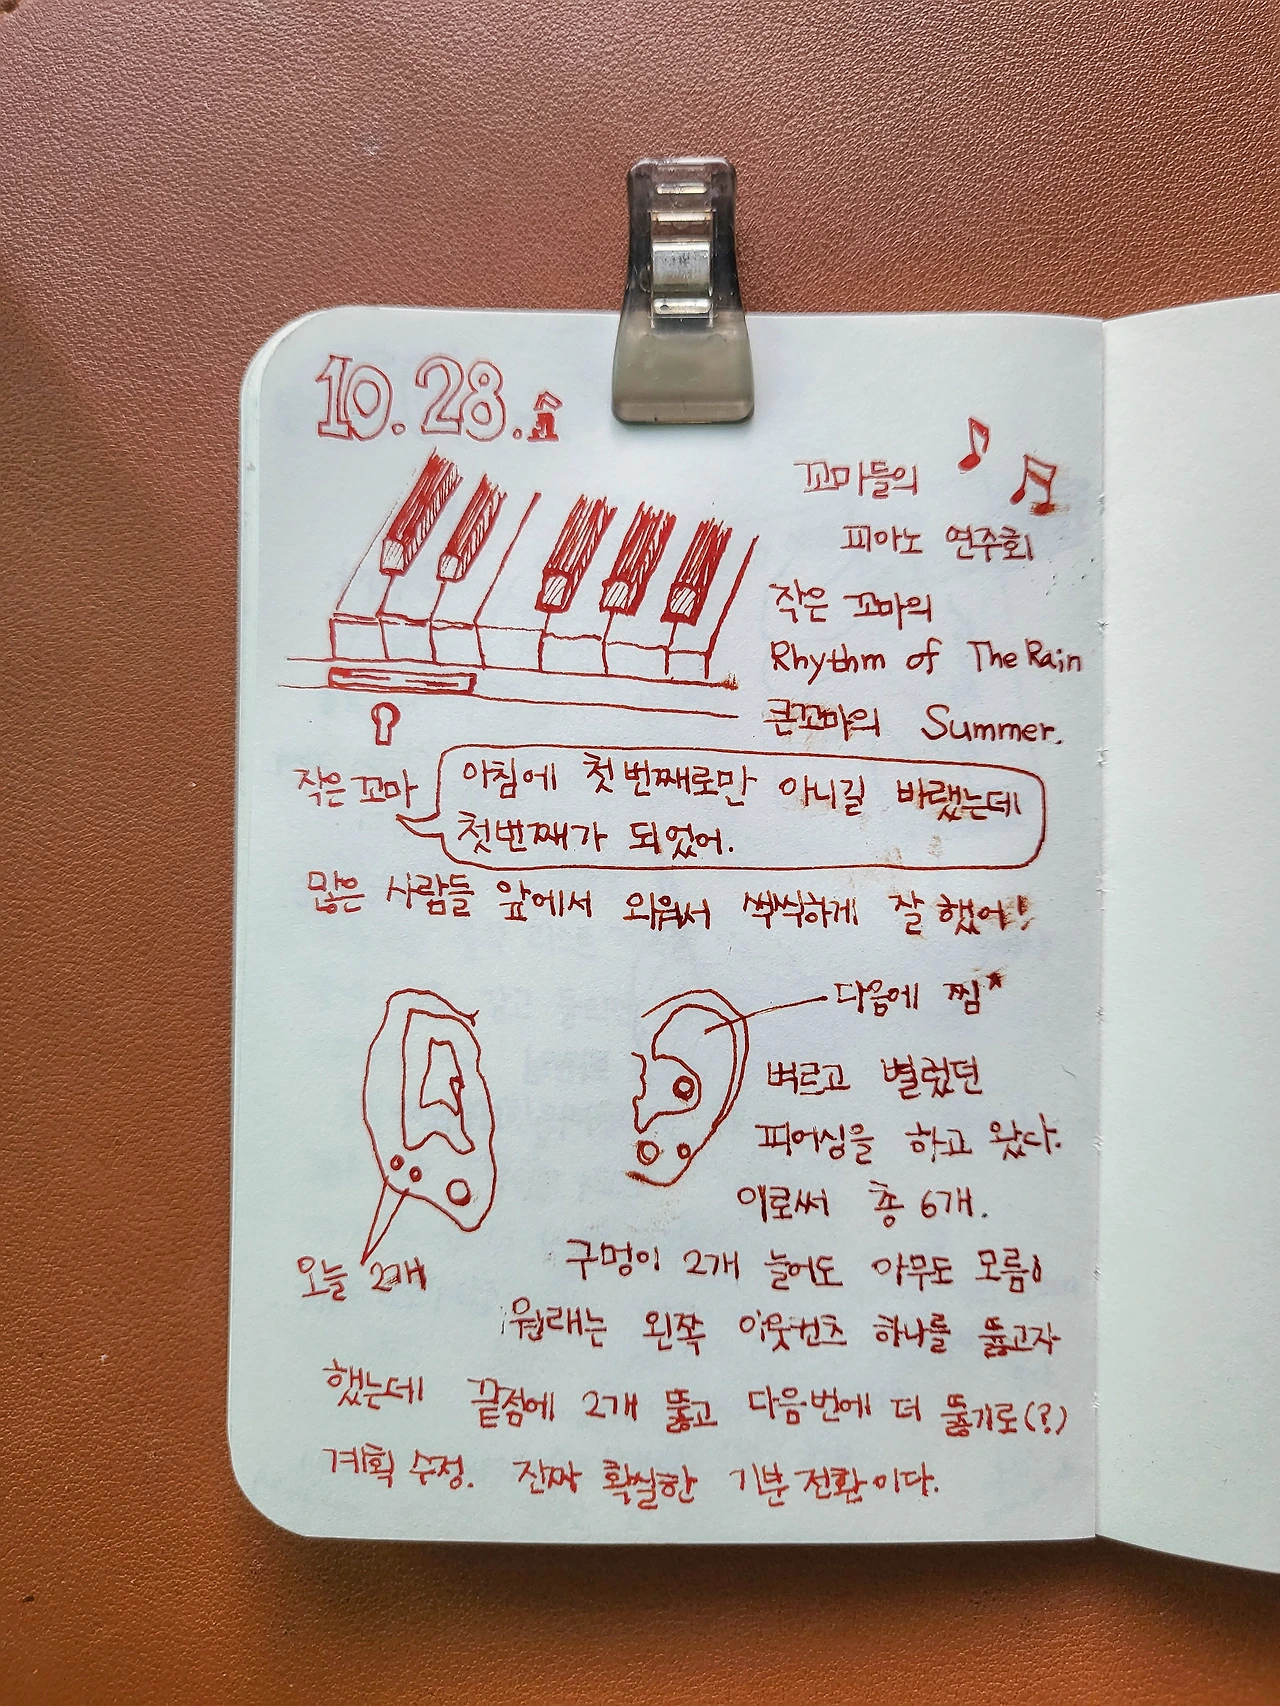 10.28.
꼬마들의
피아노 연주회
작은 꼬마의
Rhythm of The Rain
큰꼬마의 Summer.
작은 꼬마
아침에 첫 번째로만 아니길 바랬는데
첫번째가 되었어.
많은 사람들 앞에서 외워서 씩씩하게 잘 했어!
다음에 찜*
벼르고 별렀던
피어싱을 하고 왔다.
이로써 총 6개.
오늘 2개
구멍이 2개 늘어도 아무도 모름!
원래는 왼쪽 이웃컨츠 하나를 뚫고자
했는데 끝점에 2개 뚫고 다음번에 더 뚫기로(?)
계획 수정. 진짜 확실한 기분 전환이다.